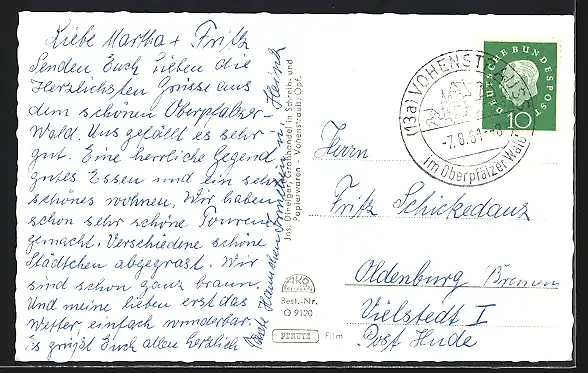 Liebe Martha + Fritz
Senden Euch Lieben die
Herzlichsten Grüsse aus
dem schönen Oberpfälzer-
Wald. Uns gefällt es sehr
gut. Eine herrliche Gegend,
gutes Essen und ein sehr
schönes wohnen. Wir haben
schon sehr schöne Touren
gemacht. Verschiedene schöne
Städtchen abgegrast. Wir
sind schon ganz braun.
Und meine lieben erst das
Wetter, einfach wunderbar.
Es grüßt Euch allen herzlich
u. Heinz
Jos. Dirnaiger, Großhandel in Schreib- und
Papierwaren - Vohenstrauß/Opf.
Best.-Nr.
O 9120
PERUTZ Film
DEUTSCHE BUNDESPOST
10
(13a) VOHENSTRAUSS
-7.8.61
Im Oberpfälzer Wald
Herrn
Fritz Schickedanz
Oldenburg Bremen
Vielstedt I
Post Hude